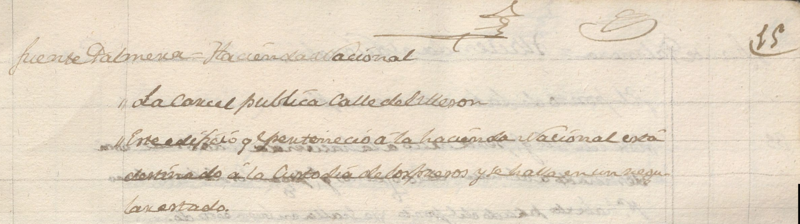 15
fuente Palmera = Hacienda Nacional
" La Carcel publica Calle del Meson
" Este edificio q.e pertenecio a la hacienda Nacional está
destinado á la Custodia de los presos y se halla en un regu
lar estado.